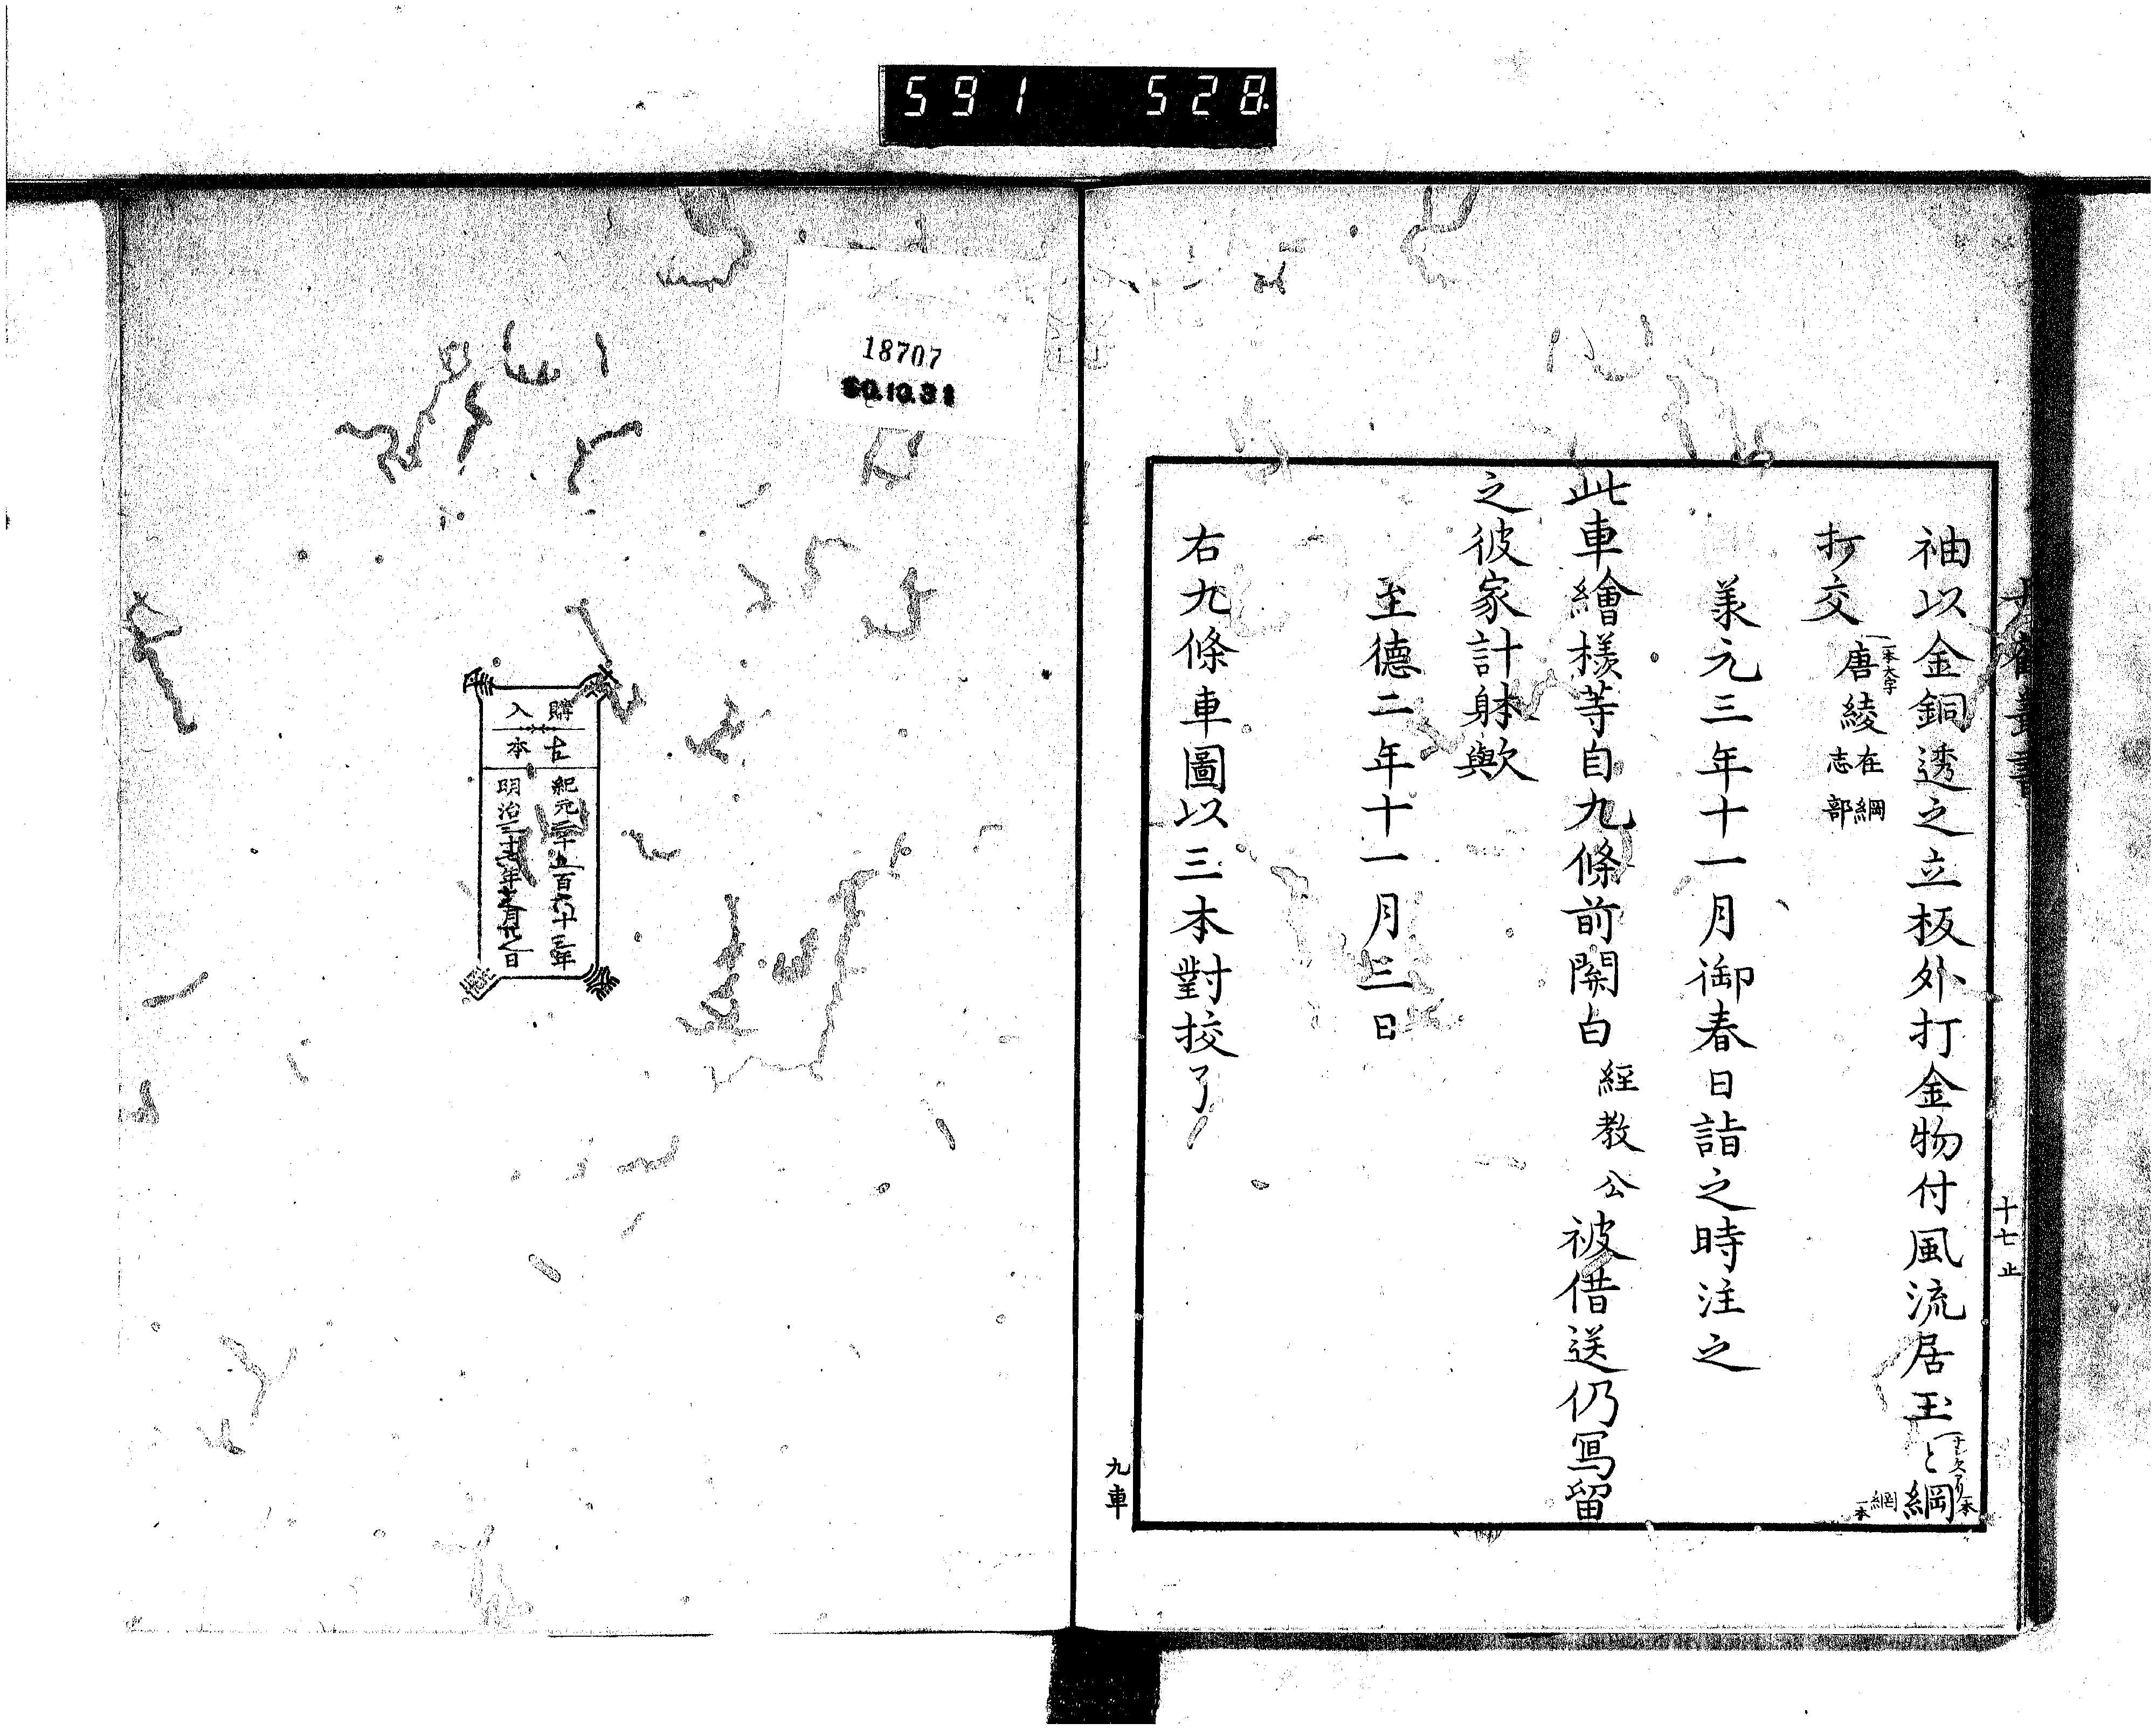 591 528
袖以金銅透之立板外打金物付風流居玉〻綱
一本
綱
一本
打交
一本大字
唐綾
在綱
志部
羕元三年十一月御春日詣之時注之
此車繪様等自九條前関白經教公被借送仍冩留
之彼家計躰歟
至德二年十一月三日
右九條車圖以三本對挍了
十七止
九車
18707
60.10.31
購入
古本
紀元二千五百六十三年
明治三十六年